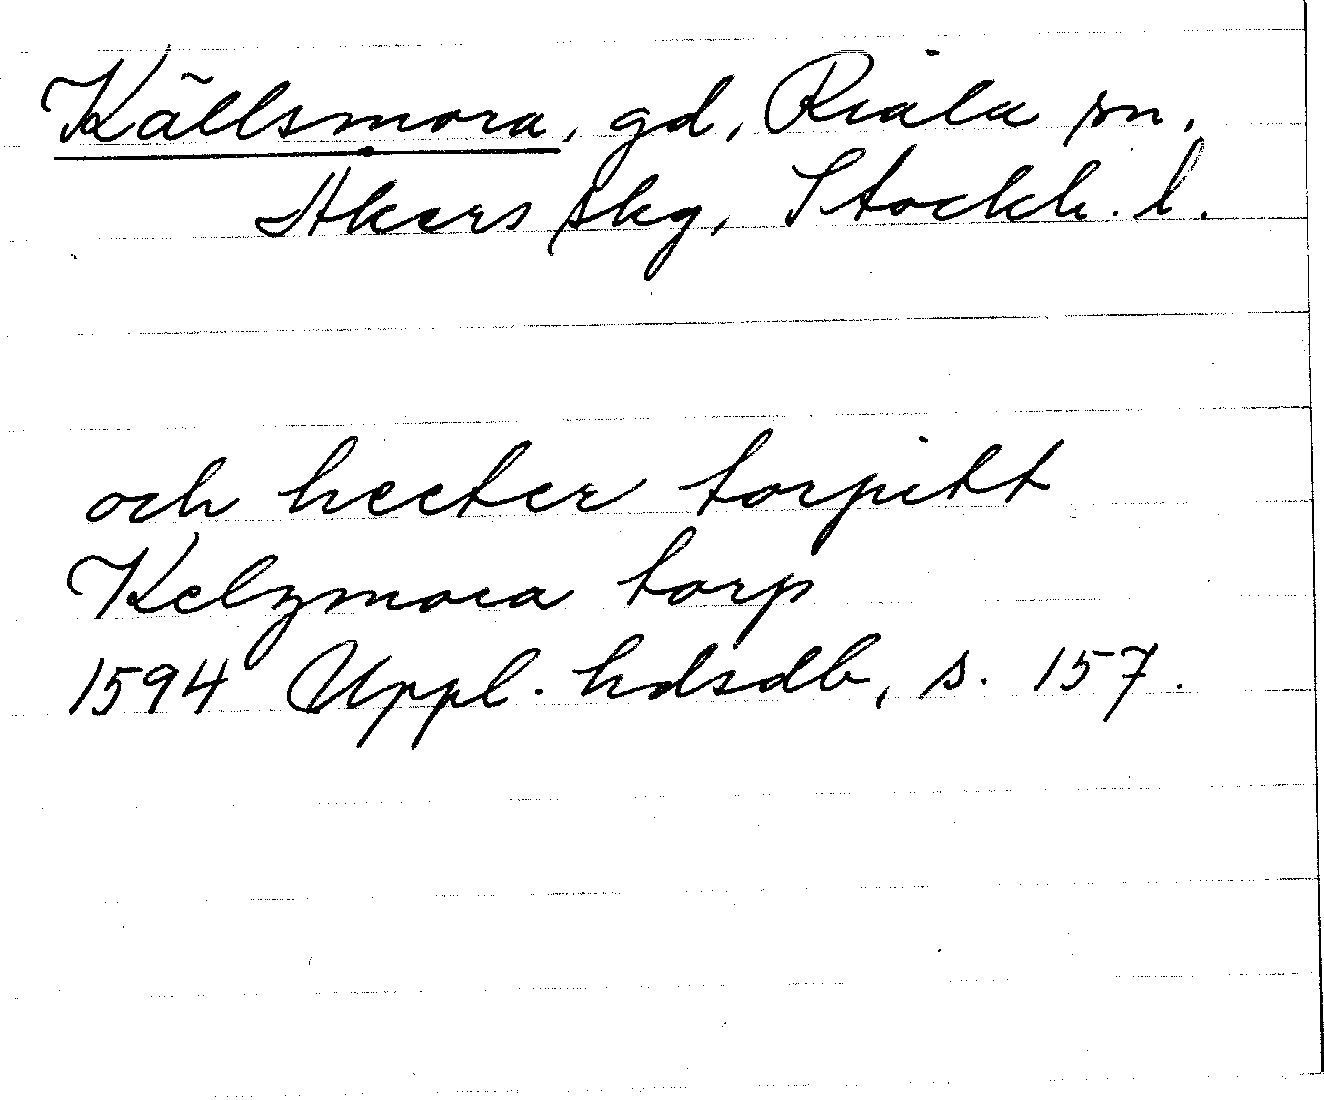 Källsmora, gd, Riala sn,
Åkers skg, Stockh. l.
och heeter torpitt
Kelzmora torp
1594 Uppl. hdsdb, s. 157.